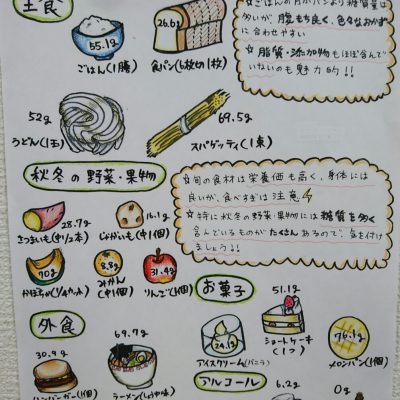 主食
55.1g
ごはん(1膳)
26.6g
食パン(6枚切1枚)
☆ごはんの方がパンより糖質量は
多いが、腹もち良く、色々なおかず
に合わせやすい
☆脂質・添加物もほぼ含んで
いないのも魅力的!!
52g
うどん(1玉)
69.5g
スパゲッティ(1束)
秋冬の野菜・果物
28.7g
さつまいも(中1/2本)
16.1g
じゃがいも(中1個)
70g
かぼちゃ(1/4カット)
8.8g
みかん(中1個)
31.4g
りんご(1個)
☆旬の食材は栄養価も高く、身体には
良いが、食べすぎは注意
☆特に秋冬の野菜・果物には糖質を多く
含んでいるものがたくさんあるので、気を付け
ましょう!!
お菓子
24.1g
アイスクリーム(バニラ)
51.1g
ショートケーキ
(1つ)
76.1g
メロンパン(1個)
外食
30.9g
ハンバーガー(1個)
69.7g
ラーメン(しょうゆ味)
アルコール
6.2g
0g